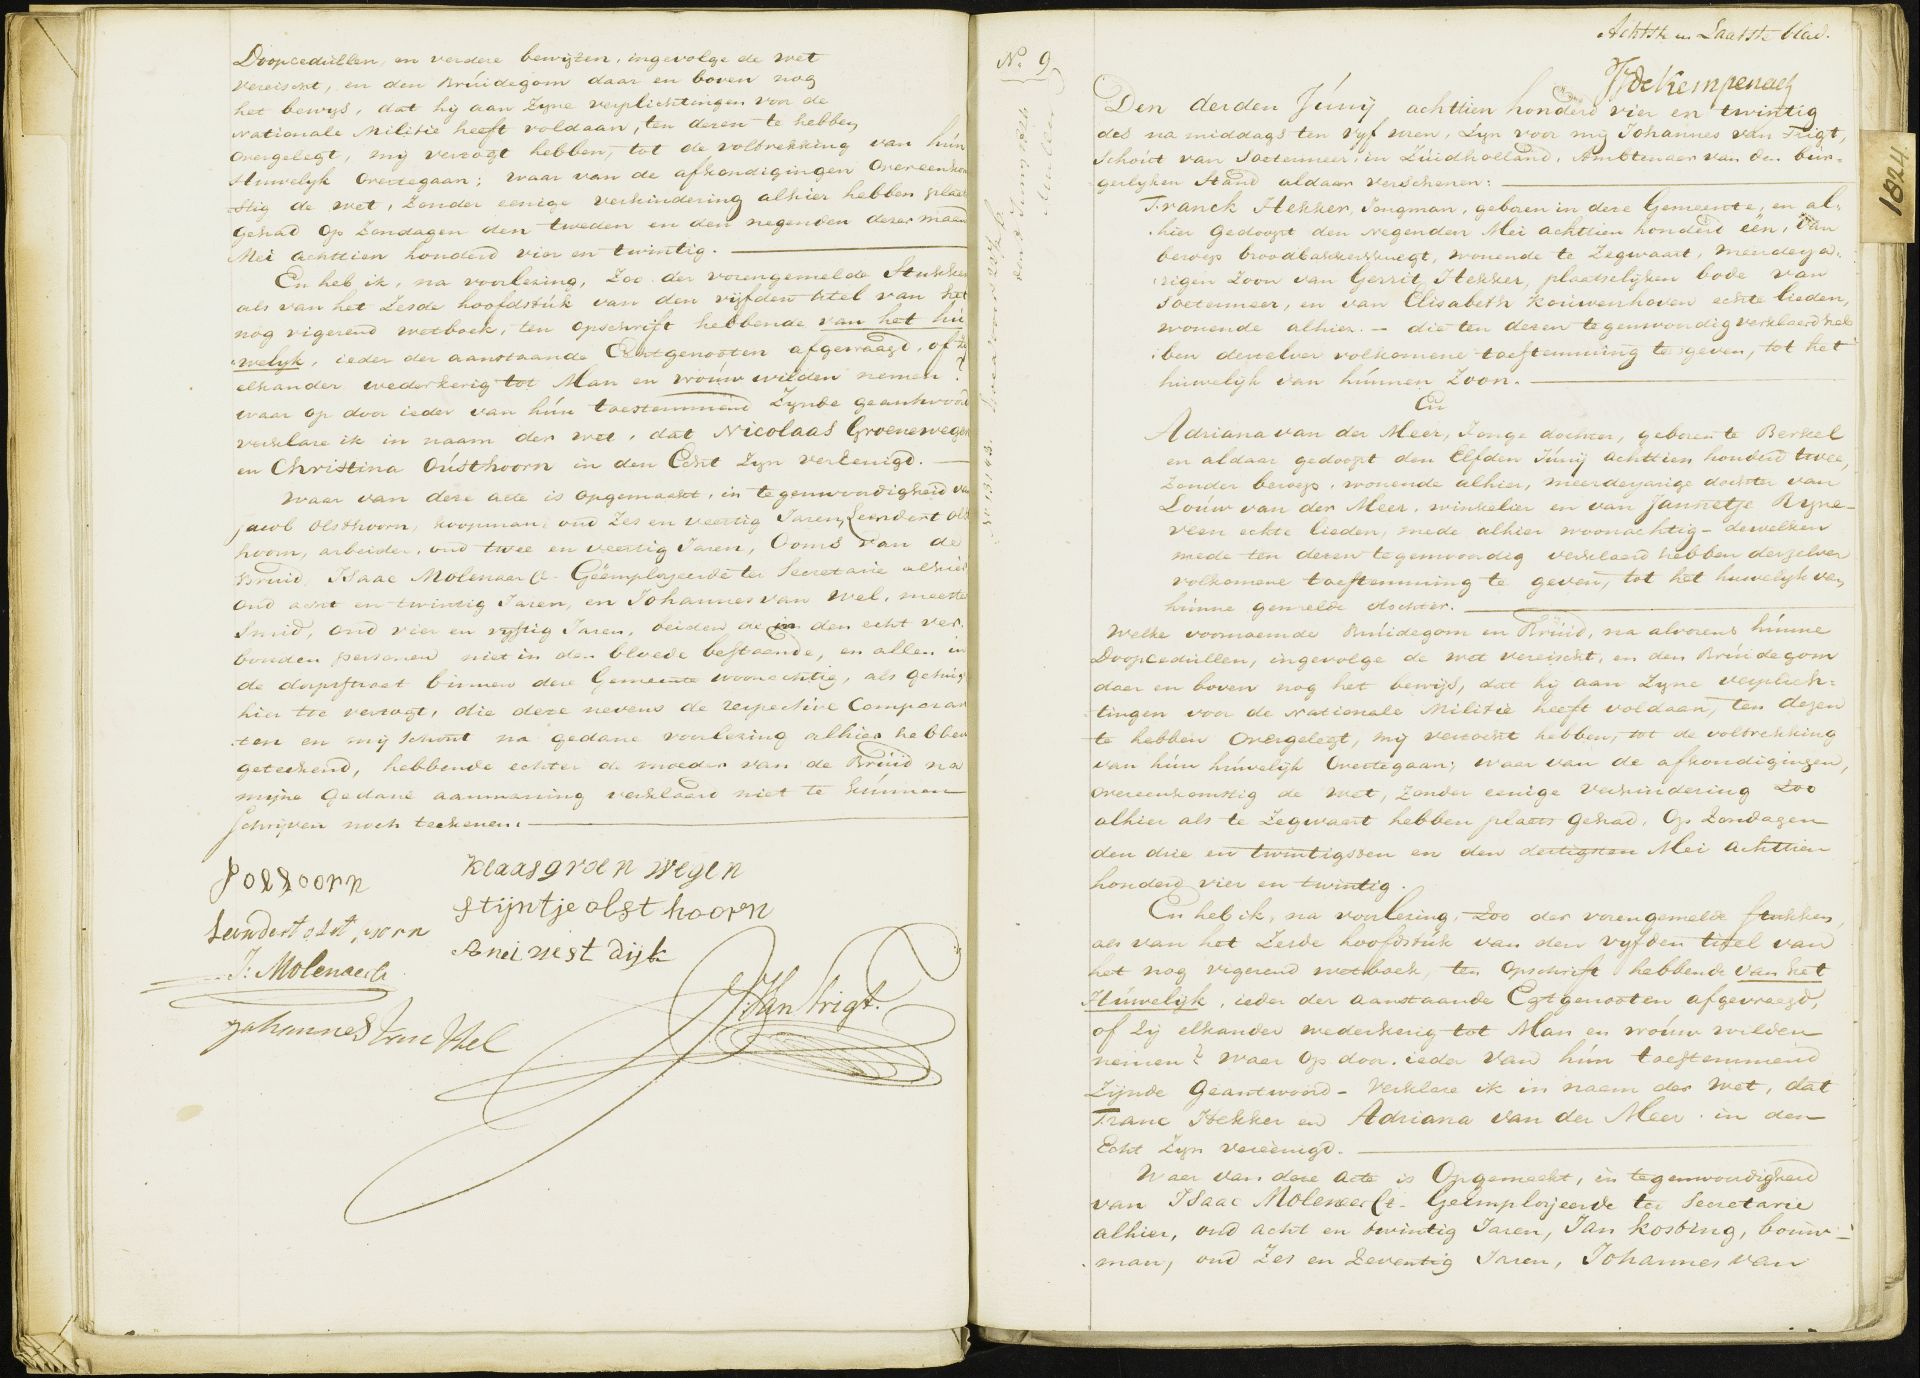 Doopcedullen, en verdere bewijzen, ingevolge de wet
vereischt, en den Brúidegom daar en boven nog
het bewijs, dat hij aan Zyne verplichtingen voor de
Nationale Militie heeft voldaan, ten dezen te hebben
overgelegt, mij verzogt hebben, tot de voltrekking van hún
Húwelyk overtegaan; waar van de afkondigingen overeenkom
stig de wet, Zonder eenige verhindering alhier hebben plaats
gehad op Zondagen den tweden en den negenden dezer maand
Mei achttien honderd vier en twintig.
En heb ik, na voorlezing, Zoo der vorengemelde Stukken
als van het Zesde hoofdstúk van den vijfden titel van het
nog vigerend wetboek, ten opschrift hebbende van het hú
welyk, ieder der aanstaande Echtgenooten afgevraagd, of Zij
elkander wederkerig tot Man en vroúw wilden nemen?
waar op door ieder van hún toestemmend Zynde geantwoord
verklare ik in naam der wet, dat Nicolaas Groenewegen
en Christina Oústhoorn in den Echt Zyn vereenigd.
Waar van deze acte is opgemaakt, in tegenwoordigheid van
Jacob Olsthoorn, koopman, oud Zes en veertig Jaren, Leendert Olst
hoorn, arbeider, oud twee en veertig Jaren, Ooms van de
Bruid, Isaac Molenaar Ct. Geëmployeerde ter Secretarie alhier
oud acht en twintig Jaren, en Johannes van Wel, meester
Smid, oud vier en vyftig Jaren, beiden de in den echt ver
bonden personen niet in den bloede bestaende, en allen in
de dorpstraat binnen deze Gemeente woonachtig, als getuigen
hier toe verzogt, die deze nevens de respective Comparan
ten en mij Schout na gedane voorlezing alhier hebben
geteekend, hebbende echter de moeder van de Brúid na
mijne gedane aanmaning verklaard niet te kúnnen
schrijven noch teekenen.
Klaas groen wegen
Leendert olst,oorn
Stijntje olst hoorn
Arei nest dijk
J: Molenaar Ct
J: Van Trigt.
Johannes van Wel
No. 9
Achtste en Laatste blad.
Den derden Júnij achttien honderd vier en twintig
des na middags ten vyf uren, Zyn voor mij Johannes van Trigt,
Schout van Soetermeer in Zúidholland, Ambtenaar van den bur-
gerlyken Stand aldaar verschenen:
Franck Hekker, Jongman, geboren in deze Gemeente, en al-
hier gedoopt den negenden Mei achttien honderd één, van
beroep broodbakkersknegt, wonende te Zegwaart, meerderja-
rigen Zoon van Gerrit Hekker, plaatselijken bode van
Soetermeer, en van Elisabeth Kouwenhoven echte lieden,
wonende alhier. – die ten dezen tegenwoordig verklaard heb
ben derzelver volkomene toestemming te geven, tot het
huwelijk van húnnen Zoon.
En
Adriana van der Meer, Jonge dochter, geboren te Berkel
en aldaar gedoopt den Elfden Júnij achttien honderd twee,
Zonder beroep, wonende alhier, meerderjarige dochter van
Loúw van der Meer, winkelier en van Jannetje Ryne-
veen echte lieden, mede alhier woonachtig – dewelken
mede ten dezen tegenwoordig verklaard hebben derzelver
volkomene toestemming te geven, tot het huwelijk van
húnne gemelde dochter.
Welke voornoemde Brúidegom en Brúid, na alvorens húnne
Doopcedullen, ingevolge de wet vereischt, en den Brúidegom
daar en boven nog het bewijs, dat hij aan Zyne verplich-
tingen voor de Nationale Militie heeft voldaan, ten dezen
te hebben overgelegt, mij verzocht hebben, tot de voltrekking
van hún húwelijk overtegaan; waar van de afkondigingen,
overeenkomstig de wet, Zonder eenige verhindering Zoo
alhier als te Zegwaart hebben plaats gehad, Op Zondagen
den drie en twintigsten en den dertigsten Mei achttien
honderd vier en twintig.
En heb ik, na voorlezing, Zoo der vorengemelde stukken,
als van het Zesde hoofdstúk van den vyfden titel van
het nog vigerend wetboek, ten opschrift hebbende van het
Húwelijk, ieder der aanstaande Egtgenooten afgevraagd,
of Zij elkander wederkerig tot Man en vroúw wilden
nemen? waar op door ieder van hún toestemmend
Zijnde geantwoord – Verklare ik in naam der wet, dat
Franc Hekker en Adriana van der Meer in den
Echt Zyn vereenigd.
Waar van deze acte is Opgemaakt, in tegenwoordigheid
van Isaac Molenaar Ct. Geëmployeerde ter Secretarie
alhier, oud acht en twintig Jaren, Jan Kosting, bouw-
man, oud Zes en Zeventig Jaren, Johannes van
1824.